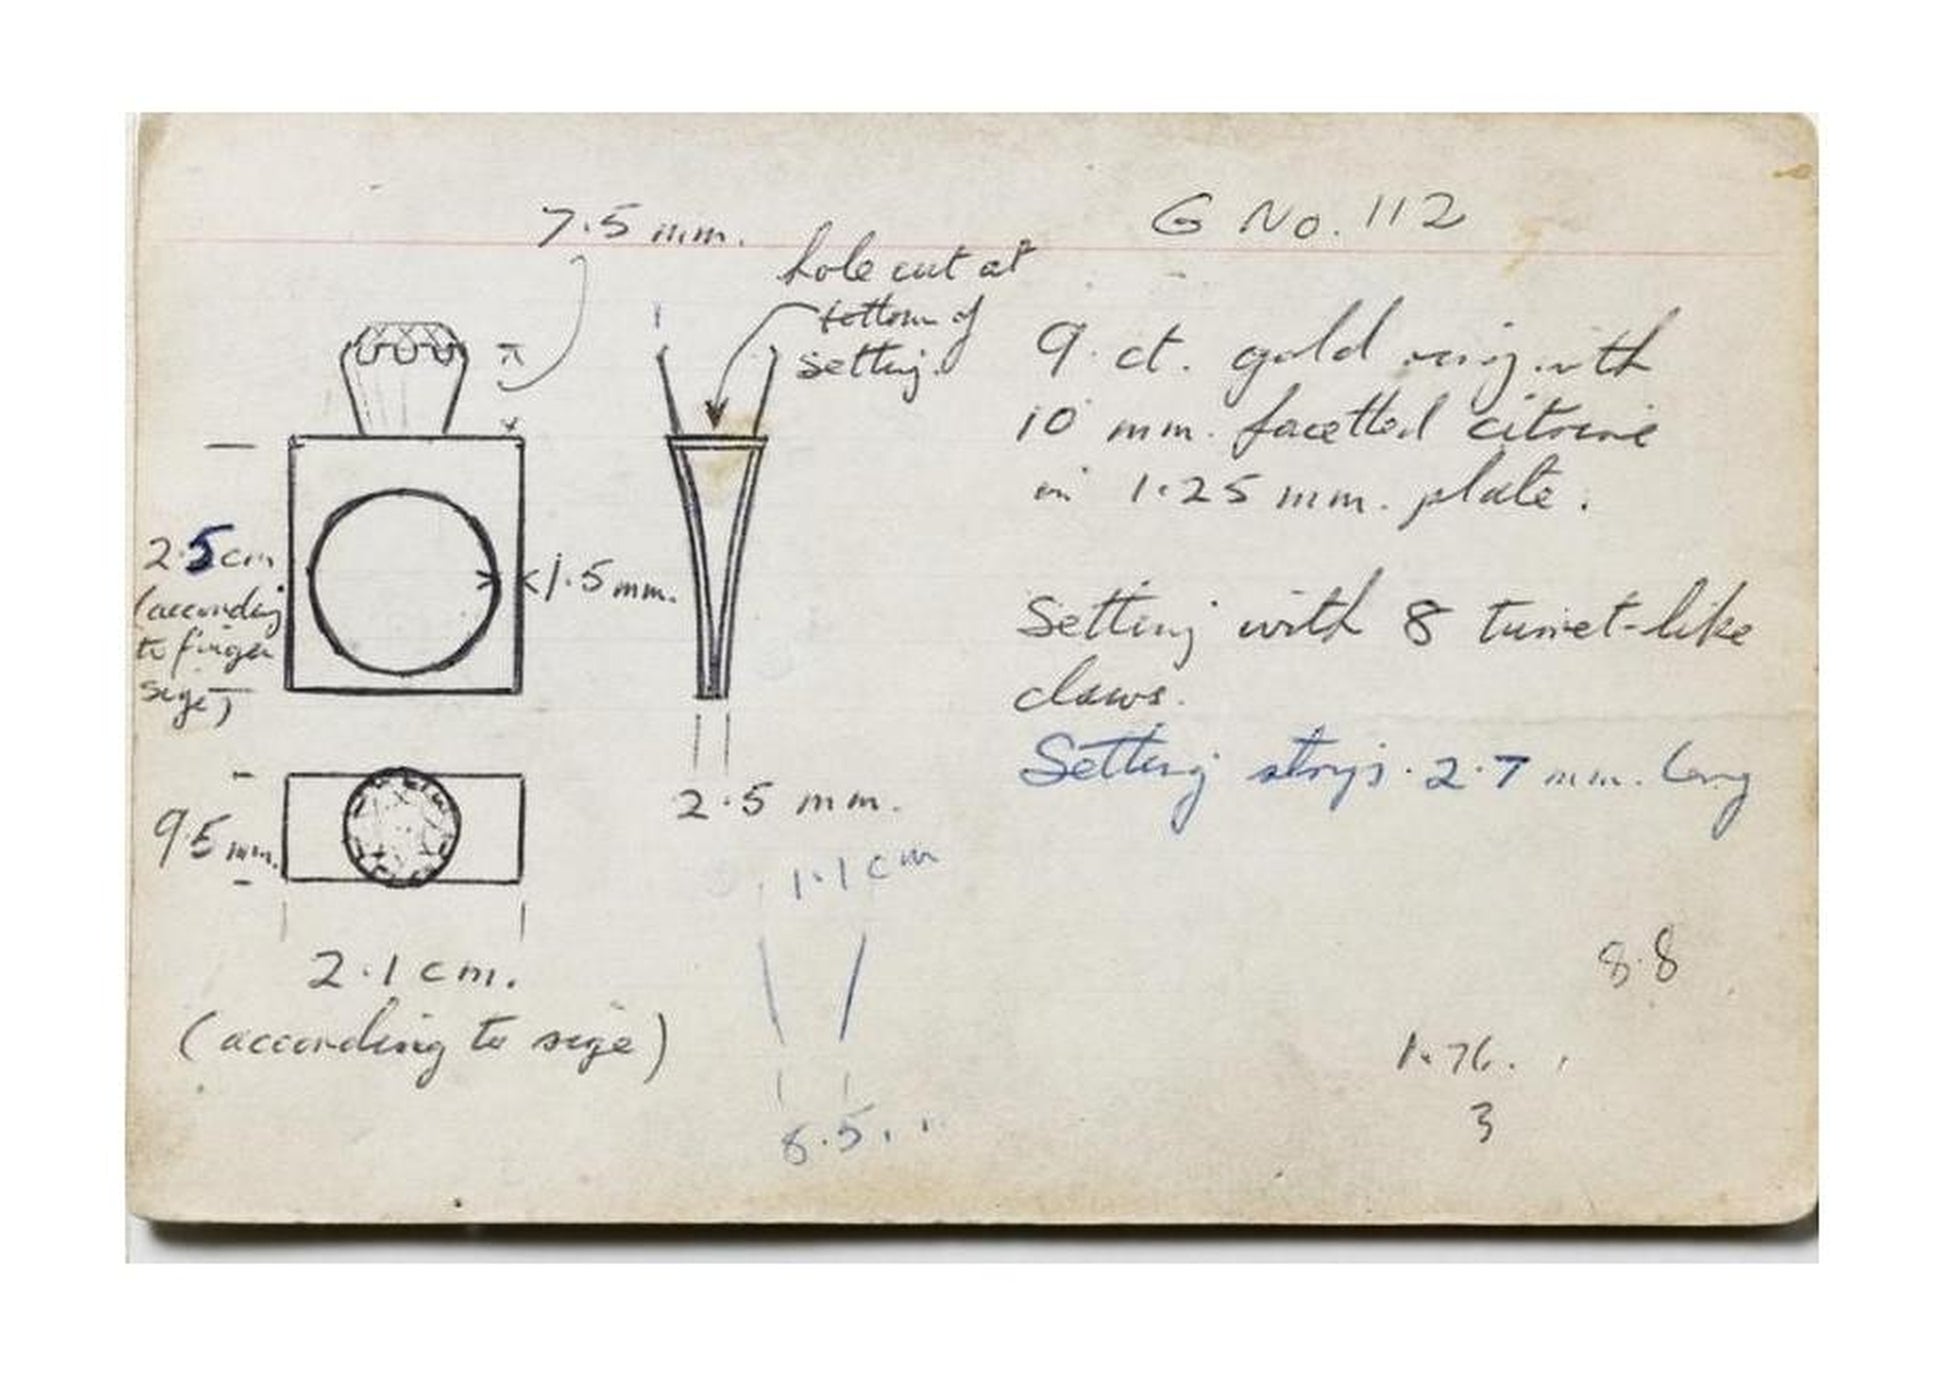 G No. 112
7.5 mm.
hole cut at
bottom of
setting.
9 ct. gold ring with
10 mm. facetted citrine
in 1.25 mm. plate.
2.5 cm
(according
to finger
size)
1.5 mm.
Setting with 8 turret-like
claws.
Setting strips 2.7 mm. long
2.5 mm.
9.5 mm.
1.1 cm
2.1 cm.
(according to size)
8.8
1.76.
3